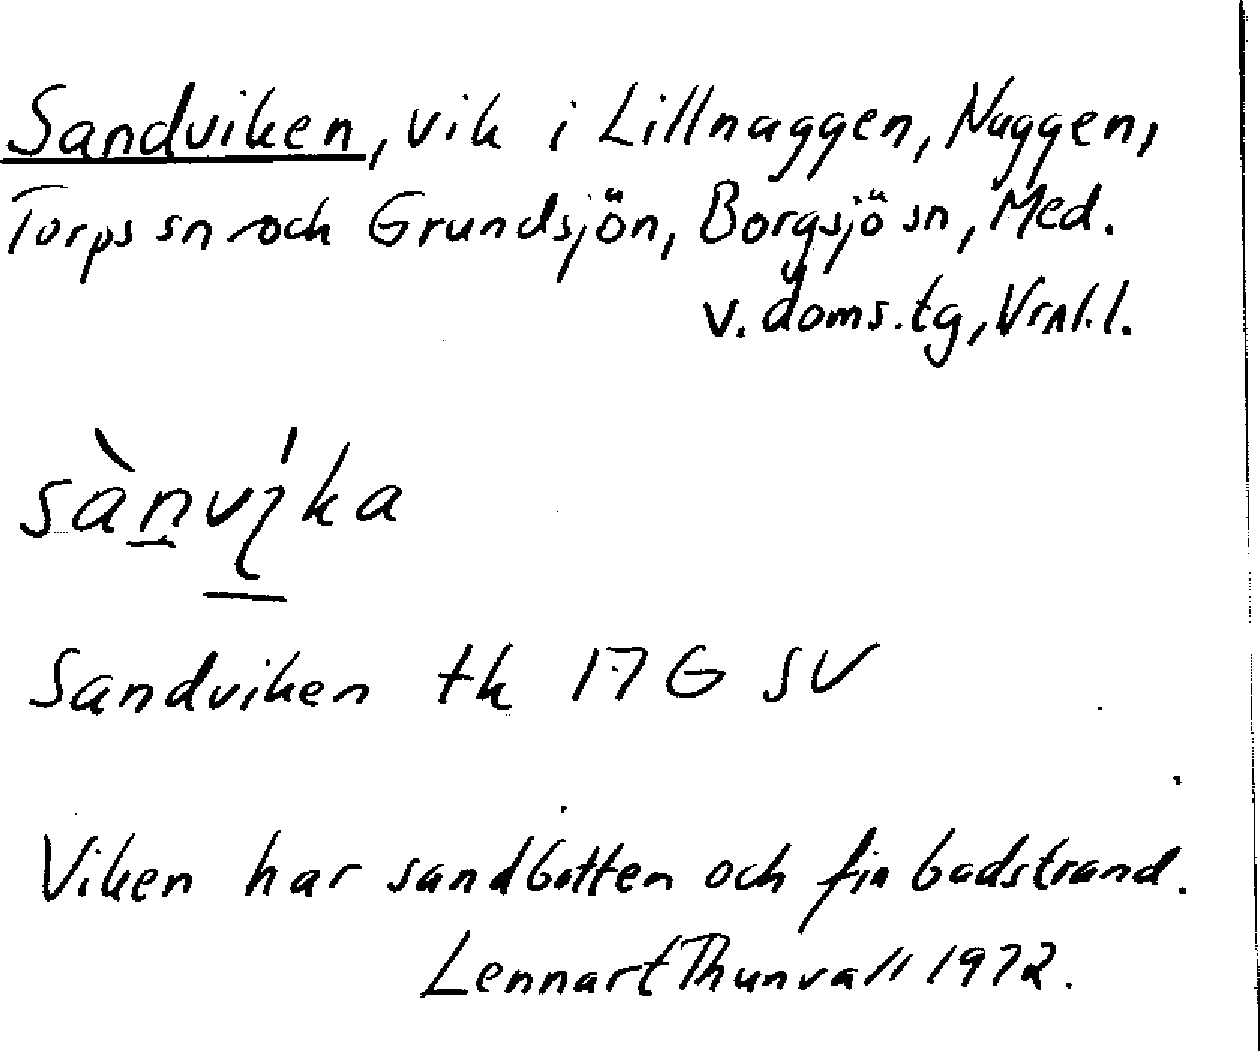 Sandviken, vik i Lillnaggen, Naggen,
Torps sn och Grundsjön, Borgsjö sn, Med.
v. doms.tg, Vrnl.l.
sànvíka
Sandviken tk 17 G SV
Viken har sandbotten och fin badstrand.
Lennart Thunvall 1972.